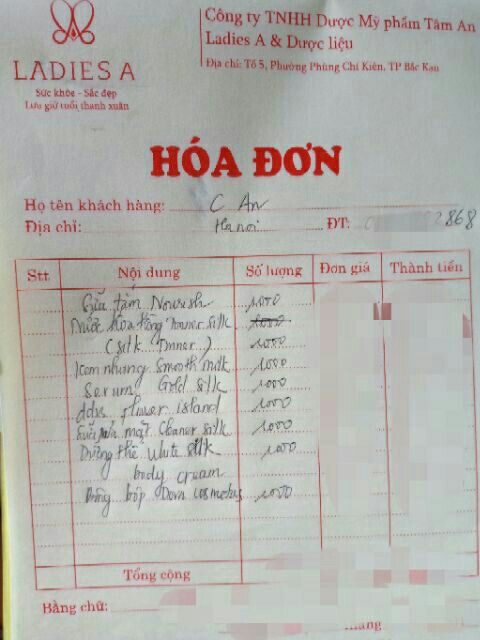 LADIES A
Sức khỏe - Sắc đẹp
Lưu giữ tuổi thanh xuân
Công ty TNHH Dược Mỹ phẩm Tâm An
Ladies A & Dược liệu
Địa chỉ: Tổ 5, Phường Phùng Chí Kiên, TP Bắc Kạn
HÓA ĐƠN
Họ tên khách hàng: C An
Địa chỉ: Hanoi ĐT: 2868
Stt Nội dung Số lượng Đơn giá Thành tiền
Sữa tắm Nourish 1000
Silk 1000
(Silk) 1000
Kem nhung Smooth milk 1000
Serum Gold silk 1000
flower island 1000
Sữa mặt silk 1000
Dưỡng thể White silk 1000
body cream
Bông cosmetics 1000
Tổng cộng
Bằng chữ:
tháng